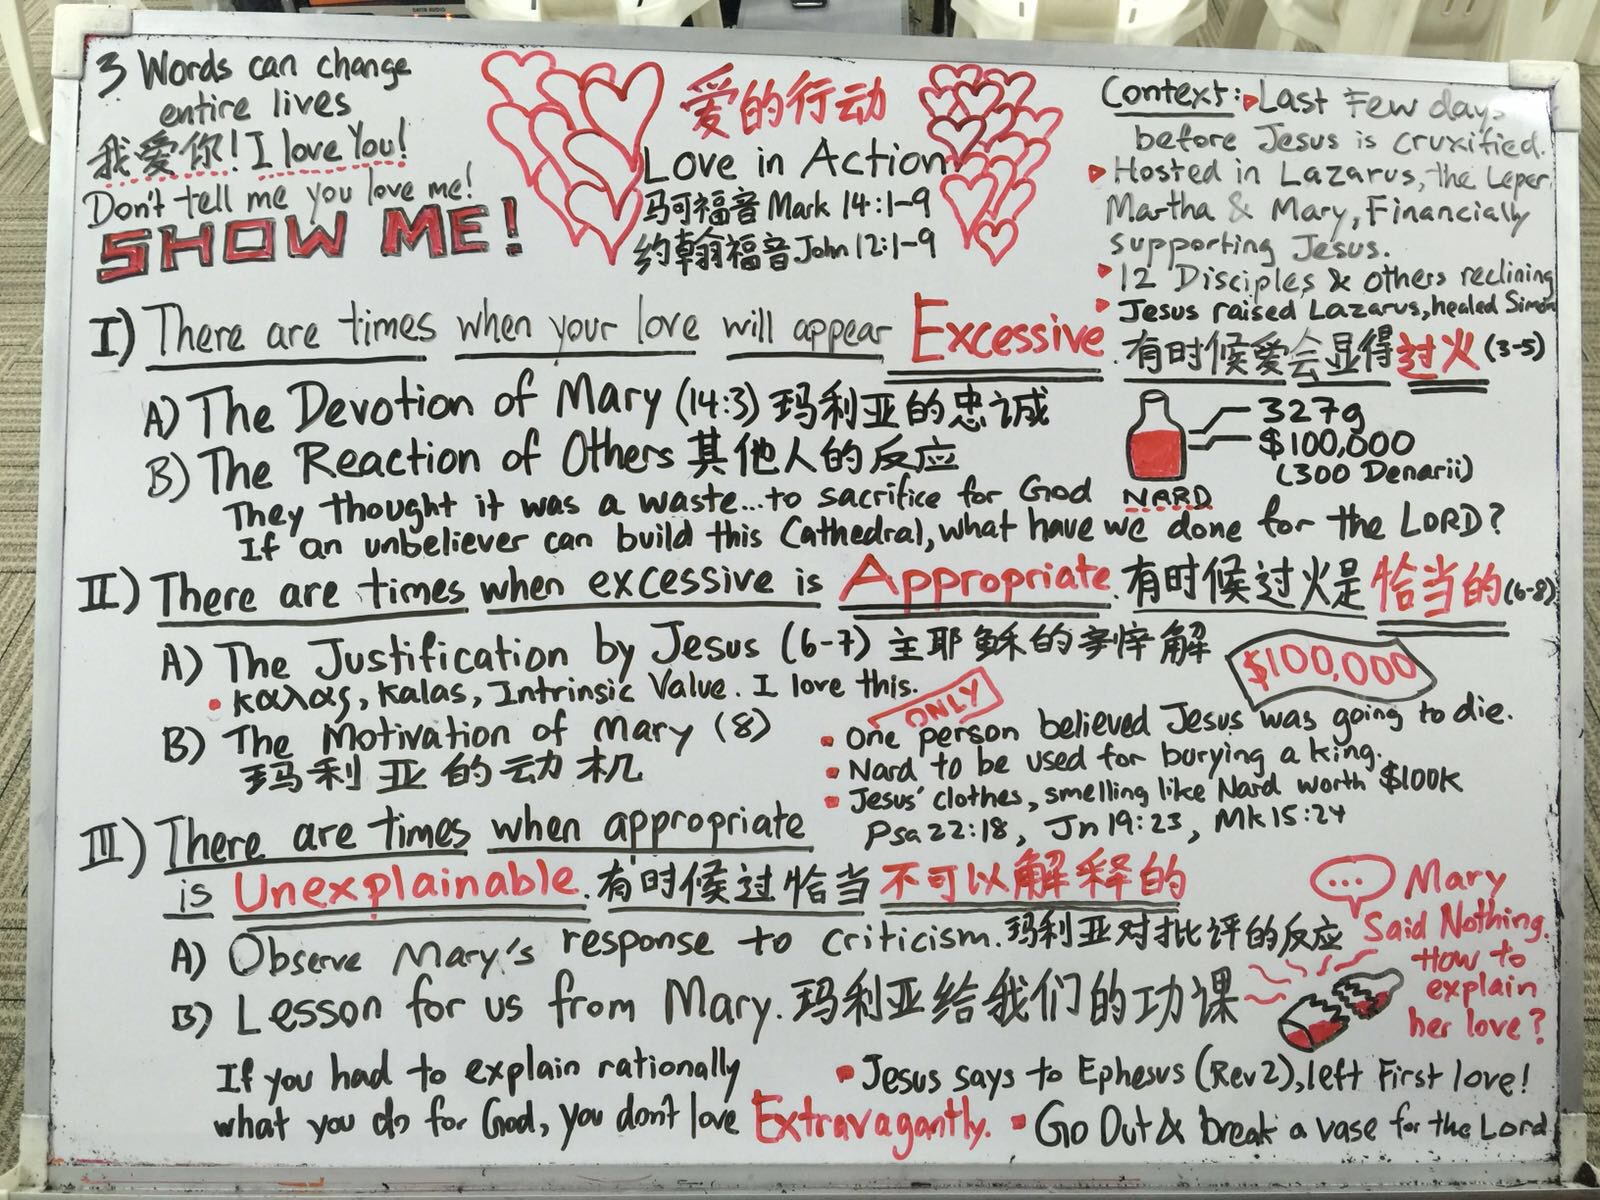 3 Words can change
entire lives
我爱你! I love You!
Don't tell me you love me!
SHOW ME!
爱的行动
Love in Action
马可福音 Mark 14:1-9
约翰福音 John 12:1-9
Context: Last Few days
before Jesus is cruxified.
Hosted in Lazarus, the Leper,
Martha & Mary, Financially
supporting Jesus.
12 Disciples & others reclining
Jesus raised Lazarus, healed Simon
I) There are times when your love will appear Excessive. 有时候爱会显得过火 (3-5)
A) The Devotion of Mary (14:3) 玛利亚的忠诚
B) The Reaction of Others 其他人的反应
They thought it was a waste... to sacrifice for God
If an unbeliever can build this Cathedral, what have we done for the LORD?
327g
$100,000
(300 Denarii)
NARD
II) There are times when excessive is Appropriate. 有时候过火是恰当的 (6-8)
A) The Justification by Jesus (6-7) 主耶稣的解
καλας, Kalas, Intrinsic Value. I love this.
$100,000
B) The Motivation of Mary (8)
玛利亚的动机
ONLY
One person believed Jesus was going to die.
Nard to be used for burying a king.
Jesus' clothes, smelling like Nard worth $100K
Psa 22:18, Jn 19:23, Mk 15:24
III) There are times when appropriate
is Unexplainable. 有时候过恰当不可以解释的
A) Observe Mary's response to criticism. 玛利亚对批评的反应
B) Lesson for us from Mary. 玛利亚给我们的功课
...
Mary
Said Nothing.
How to
explain
her love?
If you had to explain rationally
what you do for God, you don't love Extravagantly.
Jesus says to Ephesus (Rev 2), left First love!
Go Out & break a vase for the Lord